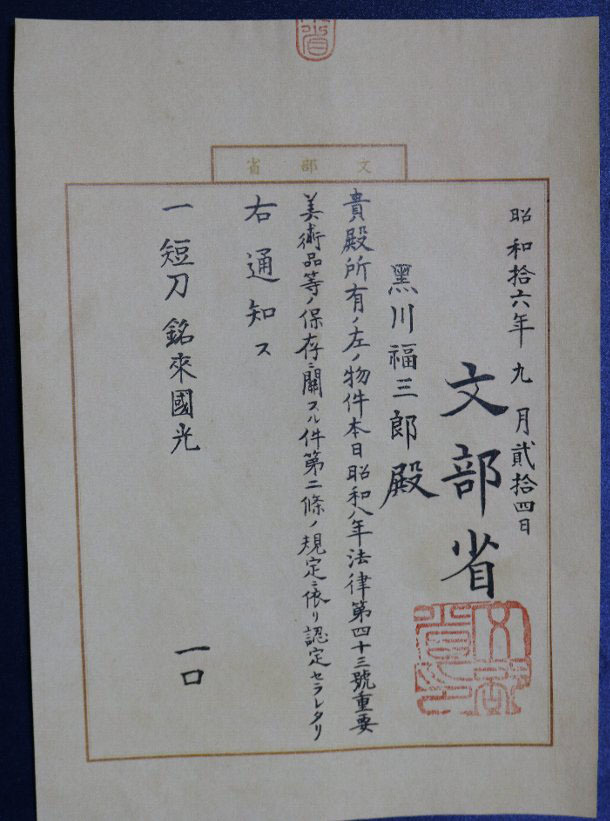 文部省
昭和拾六年九月貳拾四日
文部省
文部省印
黑川福三郎殿
貴殿所有ノ左ノ物件本日昭和八年法律第四十三號重要
美術品等ノ保存ニ關スル件第二條ノ規定ニ依リ認定セラレタリ
右通知ス
一短刀 銘來國光 一口